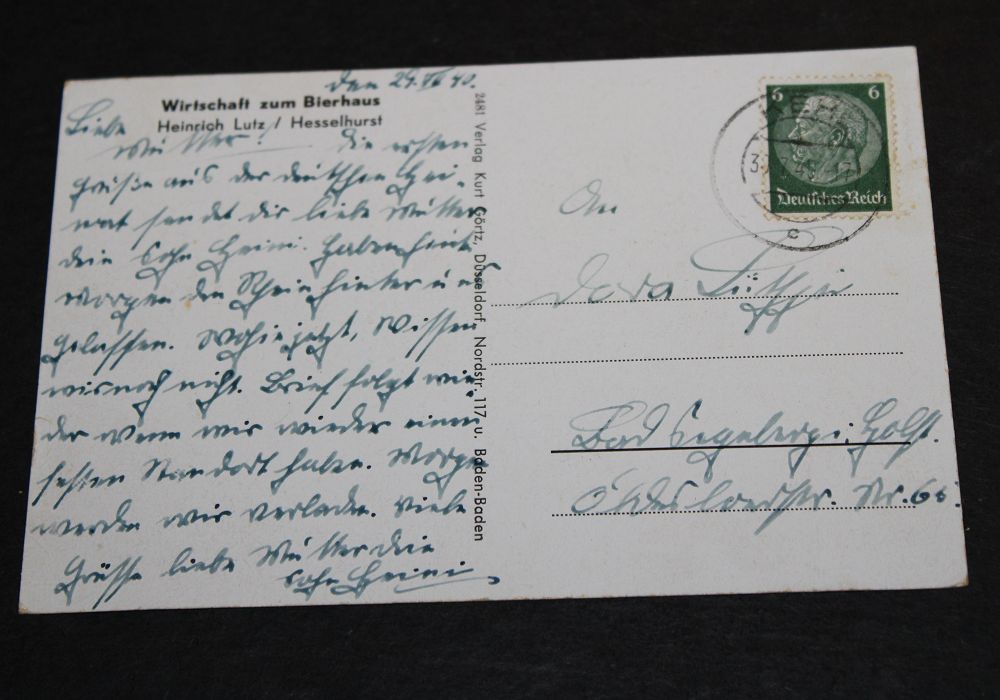 den 29. VII 40.
Wirtschaft zum Bierhaus
Heinrich Lutz / Hesselhurst
Liebe
Mutter! Die ersten
Grüße aus der deutschen Hei-
mat sendet dir liebe Mutter
dein Sohn Heini. Haben heute
Morgen den Rhein hinter uns
gelassen. Wohin jetzt, Wissen
wir noch nicht. Brief folgt wie-
der wenn wir wieder einen
festen Standort haben. Morgen
werden wir verladen. Viele
Grüsse liebe Mutter dein
Sohn Heini
2481 Verlag Kurt Görtz, Düsseldorf, Nordstr. 117 u. Baden-Baden
6 6
KEHL
Deutsches Reich
c
An
Dora
Bad Segeberg i. Holst.
Oldesloerstr. Nr. 66.